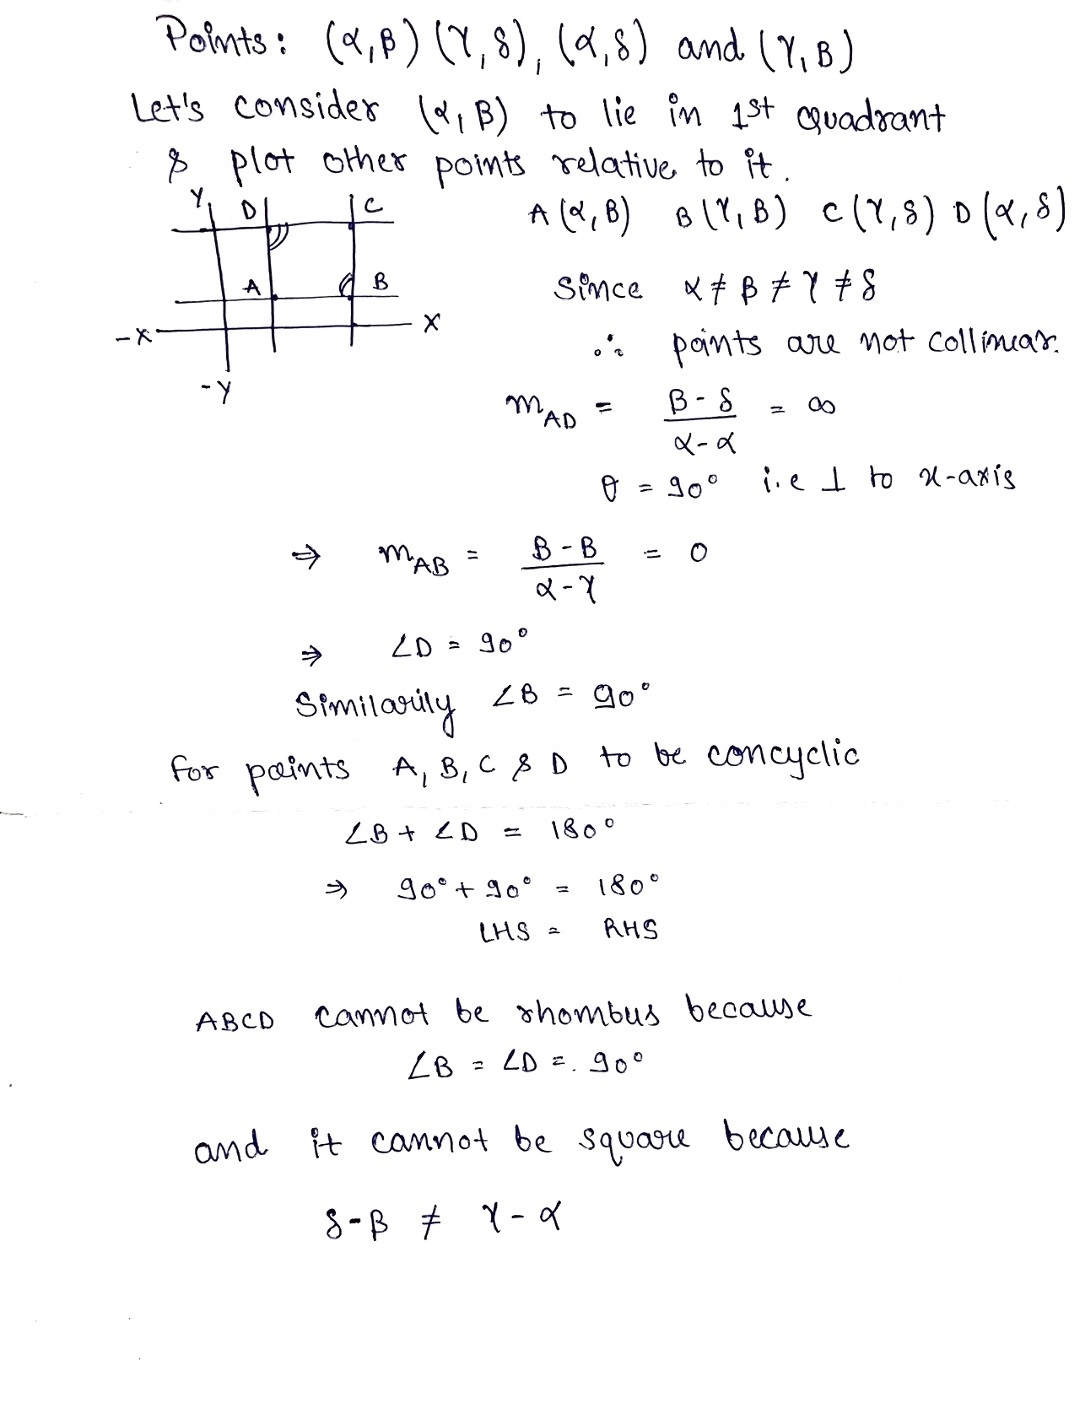 Points: (α,β) (γ,δ), (α,δ) and (γ,β)
Let's consider (α,β) to lie in 1st quadrant
& plot other points relative to it.
Y D C
A (α,β) B(γ,β) C(γ,δ) D(α,δ)
A B
-X X
-Y
Since α ≠ β ≠ γ ≠ δ
∴ points are not collinear.
m_AD = (β-δ)/(α-α) = ∞
θ = 90° i.e ⊥ to x-axis
⇒ m_AB = (β-β)/(α-γ) = 0
⇒ ∠D = 90°
Similarily ∠B = 90°
for points A, B, C & D to be concyclic
∠B + ∠D = 180°
⇒ 90° + 90° = 180°
LHS = RHS
ABCD cannot be rhombus because
∠B = ∠D = 90°
and it cannot be square because
δ-β ≠ γ-α